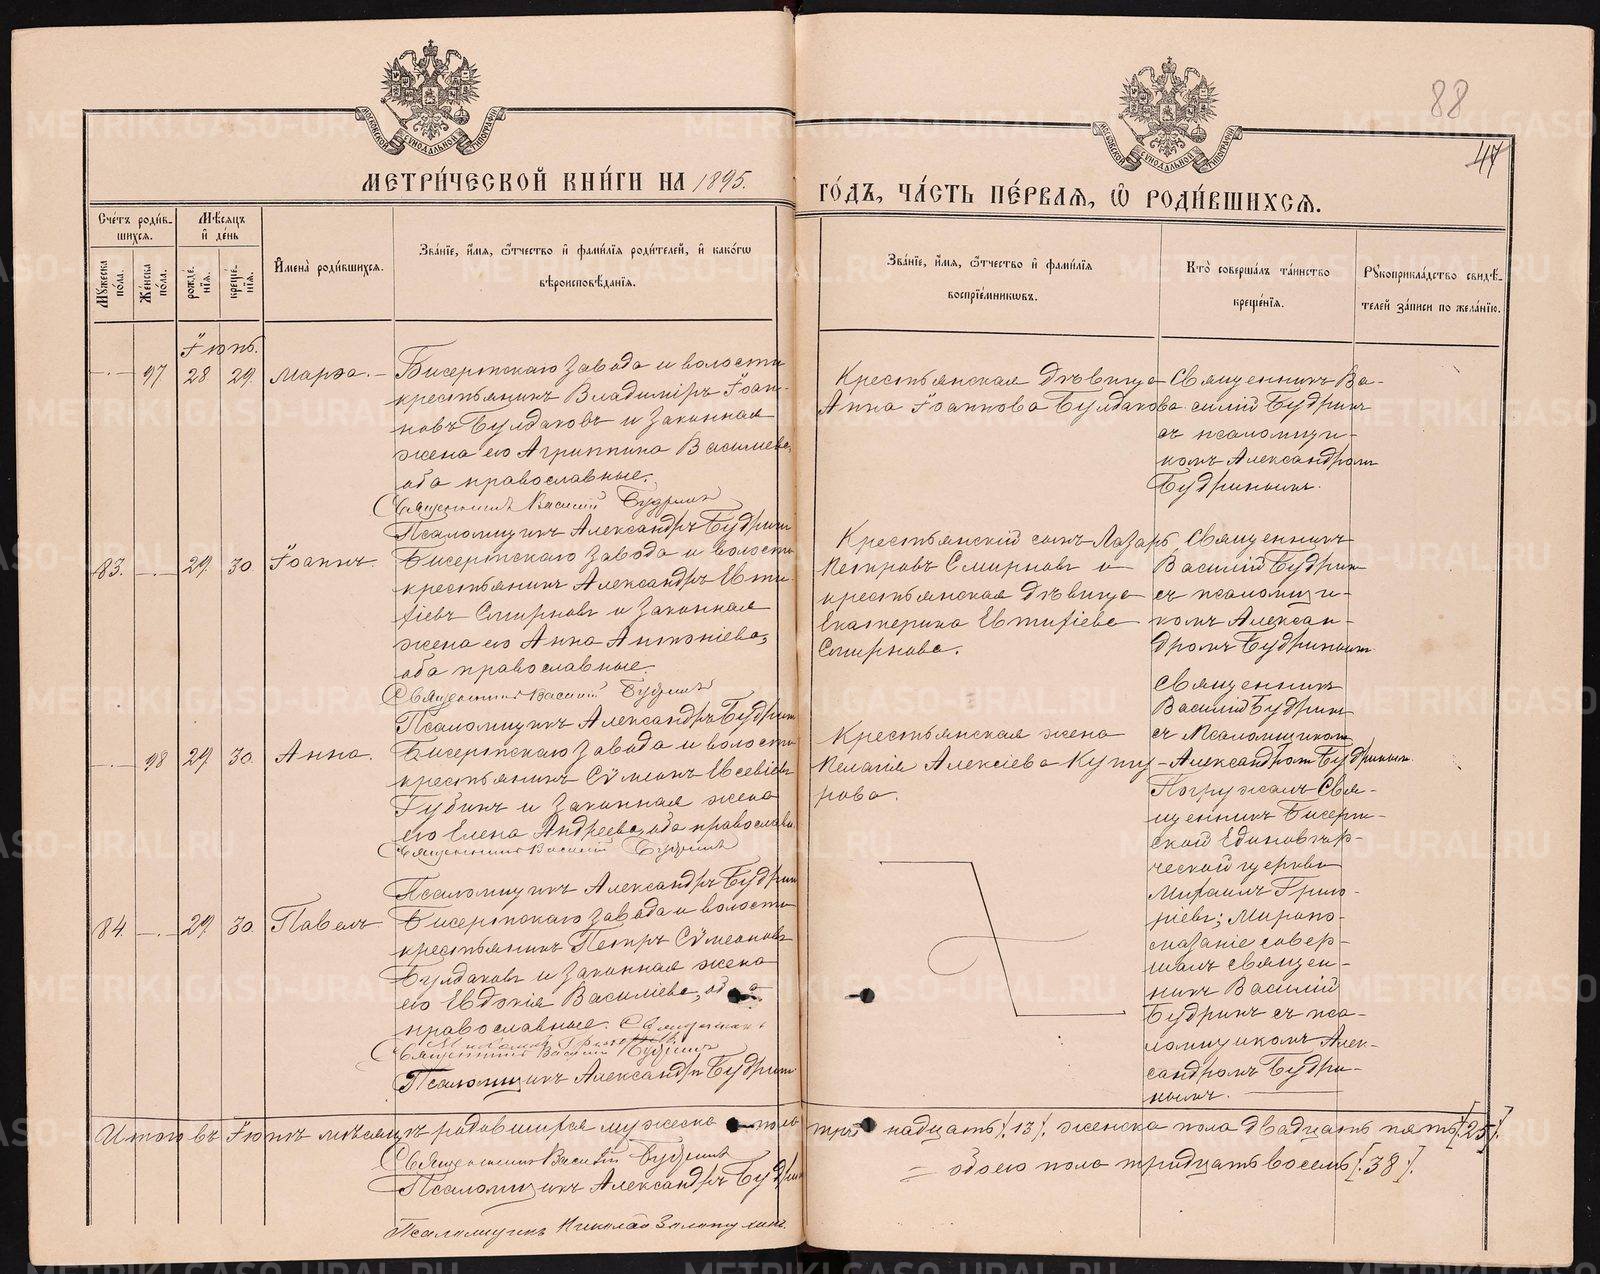 88
47
МОСКОВСКОЙ СѴНОДАЛЬНОЙ ТИПОГРАФІИ
МОСКОВСКОЙ СѴНОДАЛЬНОЙ ТИПОГРАФІИ
МЕТРИ́ЧЕСКОЙ КНИ́ГИ НА 1895.
ГО́ДЪ, ЧА́СТЬ ПЕ́РВАЯ, Ѡ҆ РОДИ́ВШИХСЯ.
Сче́тъ роди́в-
шихся.
Мѣсяцъ
и҆ де́нь
Мꙋжеска по́ла.
Же́нска по́ла.
рожде́нїѧ.
креще́нїѧ.
И҆мена̀ роди́вшихся.
Зва́нїе, и҆́мѧ, ѻ҆́тчество и҆ фами́лїѧ роди́телей, и҆ како́гѡ
вѣроисповѣ́данїѧ.
Зва́нїе, и҆́мѧ, ѻ҆́тчество и҆ фами́лїѧ
воспрїе́мникѡвъ.
Кто̀ соверша́лъ та́инство
креще́нїѧ.
Рꙋкоприкла́дство свидѣ́-
телей за́писи по жела́нїю.
Іюнь.
97 28 29. Марѳа. Бисертскаго завода и волости
крестьянинъ Владиміръ Іоан-
новъ Булдаковъ и законная
жена его Агриппина Василиева,
оба православные.
Священникъ Василій Будринъ
Псаломщикъ Александръ Будринъ
Крестьянская дѣвица
Анна Іоаннова Булдакова
Священникъ Ва-
силій Будринъ
съ псаломщи-
комъ Александромъ
Будринымъ.
83. 29. 30. Іоаннъ. Бисертскаго завода и волости
крестьянинъ Александръ Евти-
фіевъ Смирновъ и законная
жена его Анна Антоніева,
оба православные.
Священникъ Василій Будринъ
Псаломщикъ Александръ Будринъ
Крестьянскій сынъ Лазарь
Петровъ Смирновъ и
крестьянская дѣвица
Екатерина Евтифіева
Смирнова.
Священникъ
Василій Будринъ
съ псаломщи-
комъ Алексан-
дромъ Будринымъ
98 29. 30. Анна. Бисертскаго завода и волости
крестьянинъ Сѵмеонъ Евсевіевъ
Губинъ и законная жена
его Елена Андреева, оба православн.
Священникъ Василій Будринъ
Псаломщикъ Александръ Будринъ
Крестьянская жена
Пелагія Алексіева Кучу-
рова.
Священникъ
Василій Будринъ
съ Псаломщикомъ
Александромъ Будринымъ
84. 29. 30. Павелъ Бисертскаго завода и волости
крестьянинъ Петръ Сѵмеоновъ
Булдаковъ и законная жена
его Евдокія Василіева, оба
православные. Священникъ
Михаилъ Григоріевъ
Священникъ Василій Будринъ
Псаломщикъ Александръ Будринъ
Погружалъ Свя-
щенникъ Бисерт-
ской Единовѣр-
ческой церкви
Михаилъ Григо-
ріевъ; Миропо-
мазаніе совер-
шалъ священ-
никъ Василій
Будринъ съ пса-
ломщикомъ Алек-
сандромъ Будри-
нымъ.
Итого въ Іюнѣ мѣсяцѣ родившихся мужеска пола три надцать /.13/. женска пола двадцать пять [.25].
= обоего пола тридцать восемь [.38.].
Священникъ Василій Будринъ
Псаломщикъ Александръ Будринъ
Псаломщикъ Николай